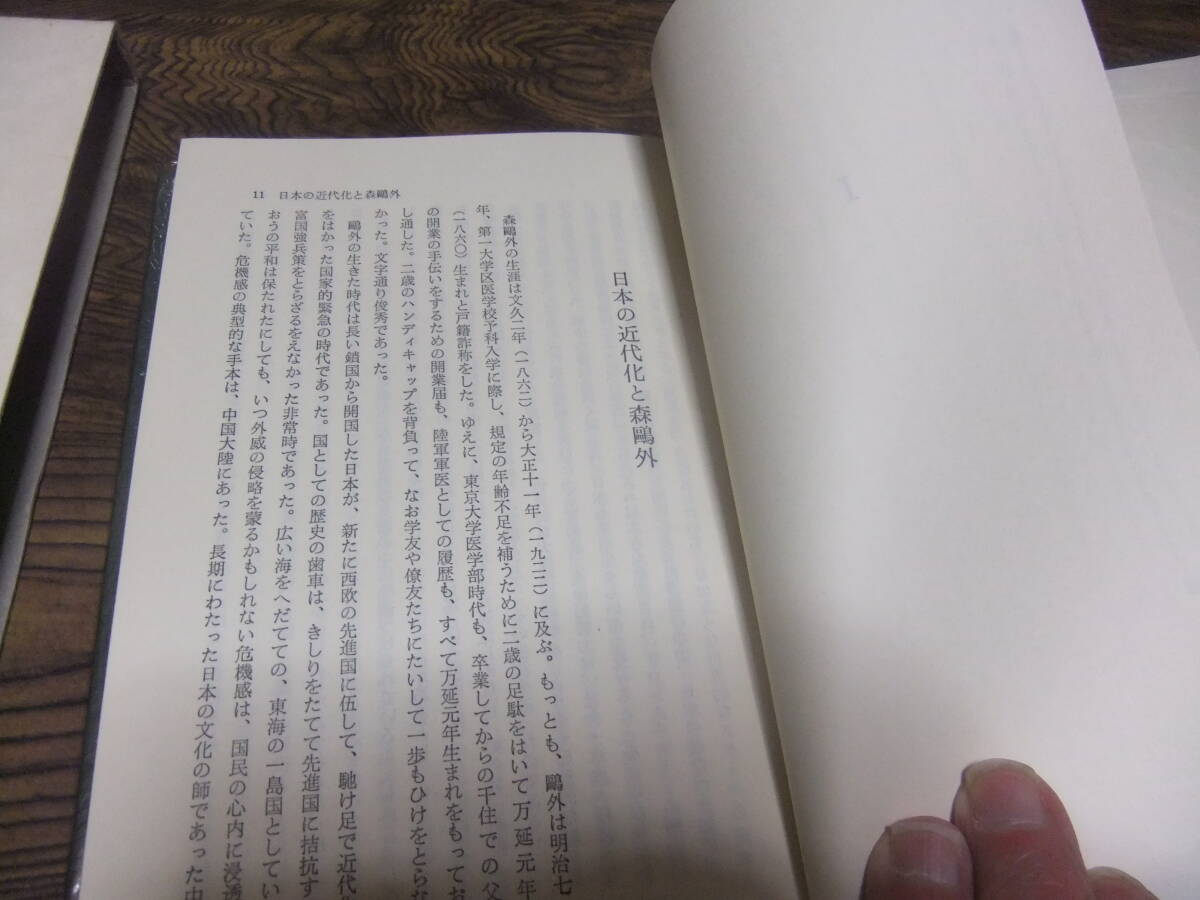 11 日本の近代化と森鷗外
日本の近代化と森鷗外
森鷗外の生涯は文久二年(一八六二)から大正十一年(一九二二)に及ぶ。もっとも、鷗外は明治七
年、第一大学区医学校予科入学に際し、規定の年齢不足を補うために二歳の足駄をはいて万延元年
(一八六〇)生まれと戸籍詐称をした。ゆえに、東京大学医学部時代も、卒業してからの千住での父
の開業の手伝いをするための開業届も、陸軍軍医としての履歴も、すべて万延元年生まれをもってお
し通した。二歳のハンディキャップを背負って、なお学友や僚友たちにたいして一歩もひけをとらな
かった。文字通り俊秀であった。
鷗外の生きた時代は長い鎖国から開国した日本が、新たに西欧の先進国に伍して、馳け足で近代
をはかった国家的緊急の時代であった。国としての歴史の歯車は、きしりをたてて先進国に拮抗す
富国強兵策をとらざるをえなかった非常時であった。広い海をへだてての、東海の一島国としてい
おうの平和は保たれたにしても、いつ外威の侵略を蒙るかもしれない危機感は、国民の心内に浸透
ていた。危機感の典型的な手本は、中国大陸にあった。長期にわたった日本の文化の師であった中